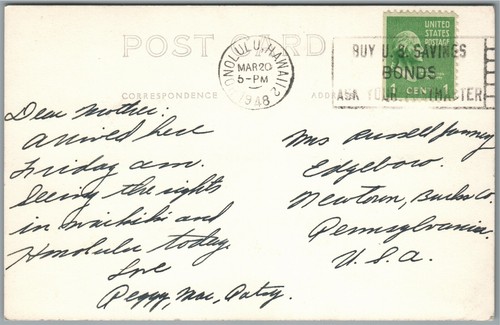 POST CARD
HONOLULU, HAWAII 2
MAR 20
5-PM
1948
BUY U. S. SAVINGS
BONDS
ASK YOUR
UNITED
STATES
POSTAGE
1 CENT 1
CORRESPONDENCE
Dear Mother:
Arrived here
Friday am.
Seeing the sights
in Waikiki and
Honolulu today.
Love
Peggy, Mac, Patsy.
Mrs Russell
Edgebow.
Newtown, Bucks Co.
Pennsylvania.
U. S. A.